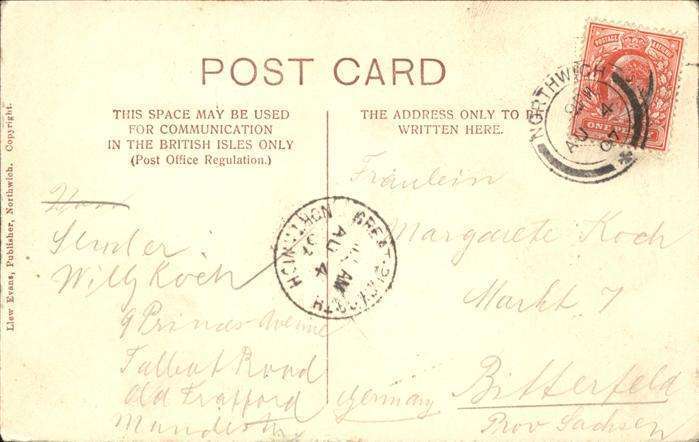 POST CARD
THIS SPACE MAY BE USED
FOR COMMUNICATION
IN THE BRITISH ISLES ONLY
(Post Office Regulation.)
THE ADDRESS ONLY TO BE
WRITTEN HERE.
Llew Evans, Publisher, Northwich. Copyright.
Sender
Willy Koch
9 Princes Avenue
Talbot Road
Old Trafford
Manchester
Fräulein
Margarete Koch
Markt 7
Bitterfeld
Germany Prov Sachsen
NORTHWICH
AU 4
07
GREAT BUDWORTH
NORTHWICH
AM
AU 4
07
POSTAGE
ONE PENNY